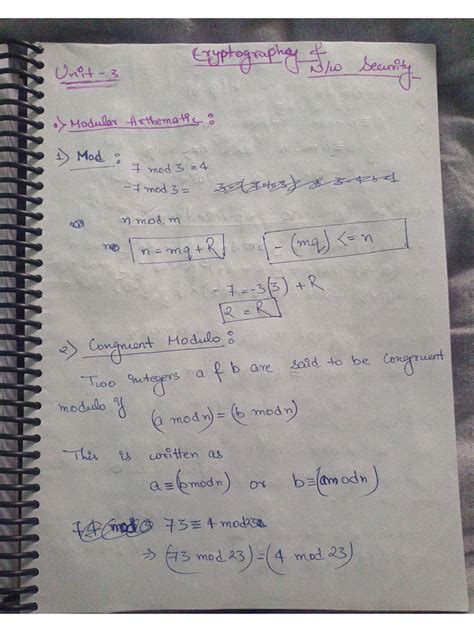 Cryptography &
Unit - 3 N/w Security
Modular Arthematic:
1) Mod :
7 mod 3 = 4
-7 mod 3 =
n mod m
n = mq + R - (mq) <= n
-7 = -3(3) + R
2 = R
2) Congruent Modulo :
Two integers a & b are said to be congruent
modulo if (a modn) = (b modn)
This is written as
a ≡ (bmodn) or b ≡ (amodn)
73 ≡ 4 mod23
⇒ (73 mod 23) = (4 mod 23)